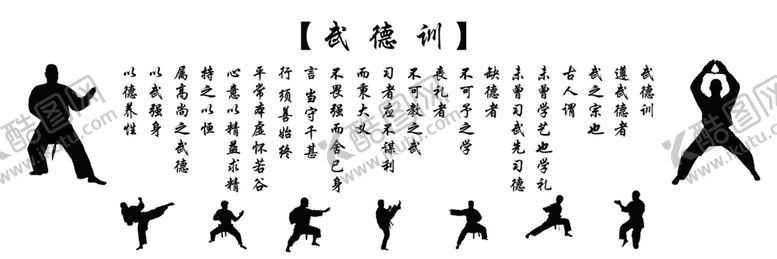 【武德训】
武德训
遵武德者
武之宗也
古人谓
未曾学艺也学礼
未曾习武先习德
缺德者
不可予之学
丧礼者
不可教之武
习者应不谋利
而秉大义
不畏强而舍己身
言当守千甚
行须善始终
平常存虚怀若谷
心意以精益求精
持之以恒
属高尚之武德
以武强身
以德养性